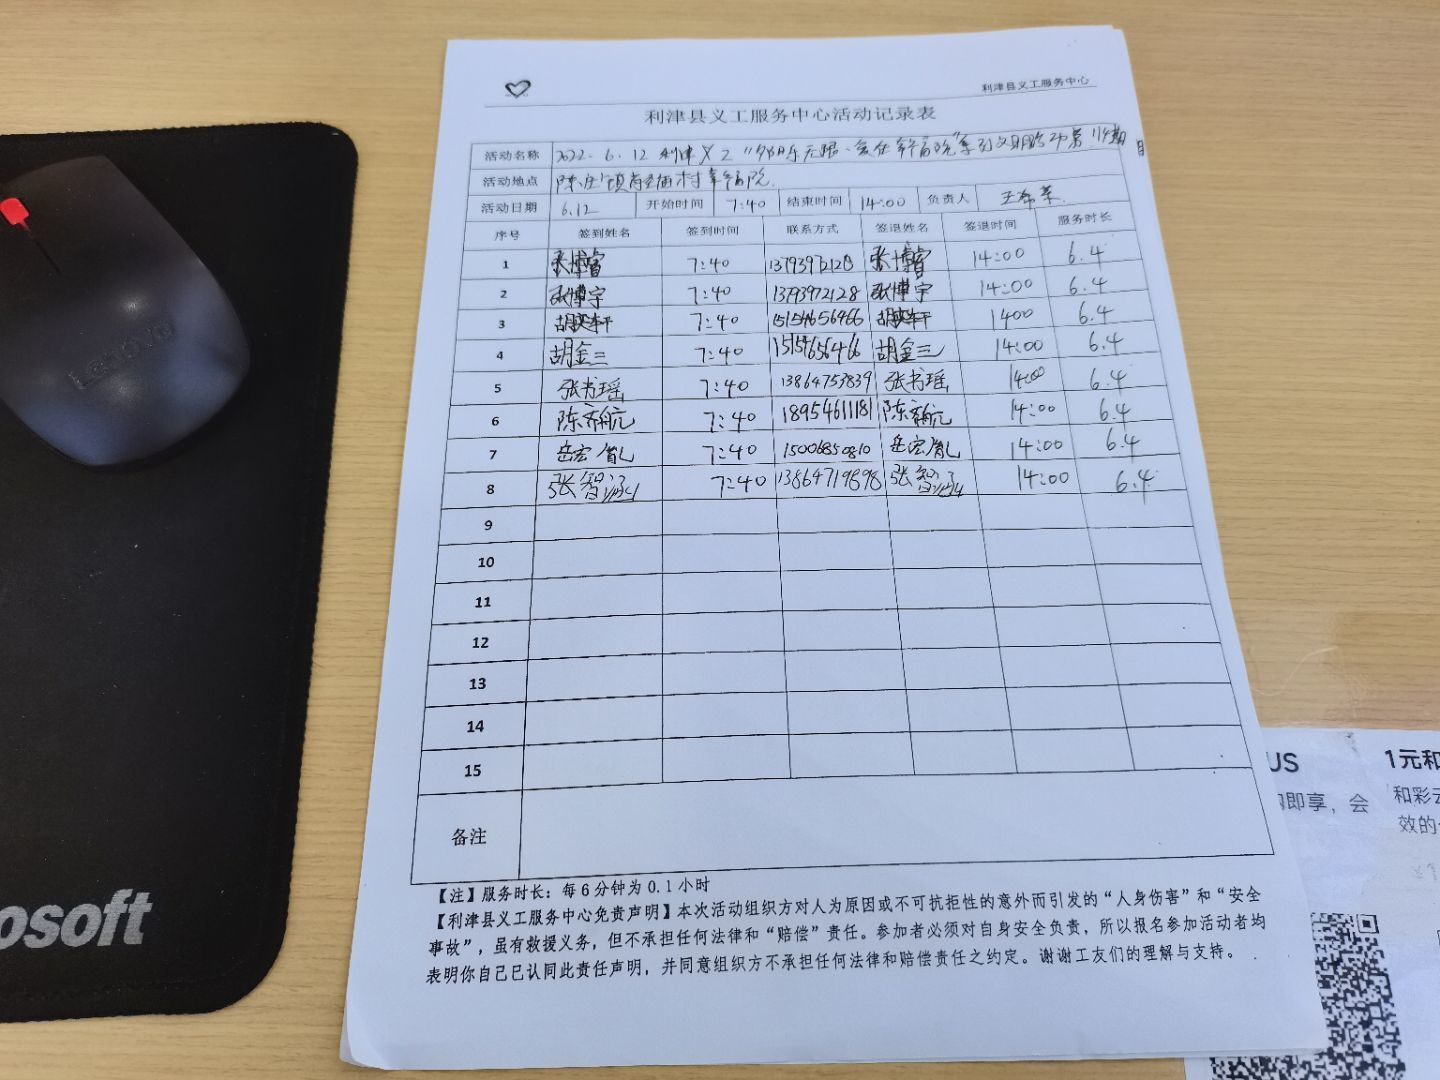 利津县义工服务中心
利津县义工服务中心活动记录表
活动名称 2022.6.12 利津义工
活动地点 陈庄镇 村幸福院
活动日期 6.12 开始时间 7:40 结束时间 14:00 负责人
序号 签到姓名 签到时间 联系方式 签退姓名 签退时间 服务时长
1 张博睿 7:40 13793972128 张博睿 14:00 6.4
2 张博宇 7:40 13793972128 张博宇 14:00 6.4
3 7:40 15154656466 1400 6.4
4 胡金三 7:40 15154656466 胡金三 14:00 6.4
5 张书瑶 7:40 13864753839 张书瑶 14:00 6.4
6 陈齐航 7:40 18954611181 陈齐航 14:00 6.4
7 岳宏胤 7:40 15006850810 岳宏胤 14:00 6.4
8 张智涵 7:40 13864719898 张智涵 14:00 6.4
9
10
11
12
13
14
15
备注
【注】服务时长：每6分钟为0.1小时
【利津县义工服务中心免责声明】本次活动组织方对人为原因或不可抗拒性的意外而引发的“人身伤害”和“安全
事故”，虽有救援义务，但不承担任何法律和“赔偿”责任。参加者必须对自身安全负责，所以报名参加活动者均
表明你自己已认同此责任声明，并同意组织方不承担任何法律和赔偿责任之约定。谢谢工友们的理解与支持。
Lenovo
osoft
US
即享，会
1元和
和彩云
效的